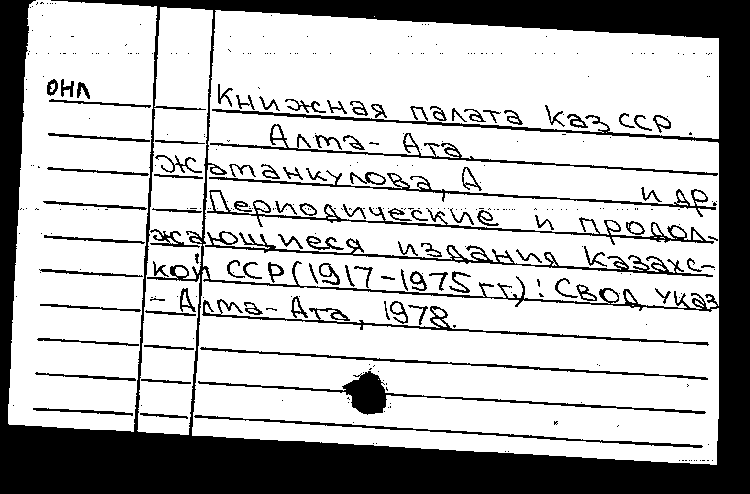 ОНЛ
Книжная палата КазССР.
Алма-Ата.
Жатанкулова, А и др.
Периодические и продол-
жающиеся издания Казахс-
кой ССР (1917-1975 гг.): Свод указ
- Алма-Ата, 1978.